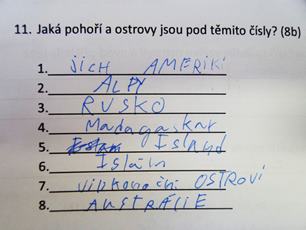 11. Jaká pohoří a ostrovy jsou pod těmito čísly? (8b)
1. JICH AMERIKI
2. ALPY
3. RUSKO
4. Madagaskar
5. Island
6. Islám
7. OSTROVI
8. AUSTRÁLIE